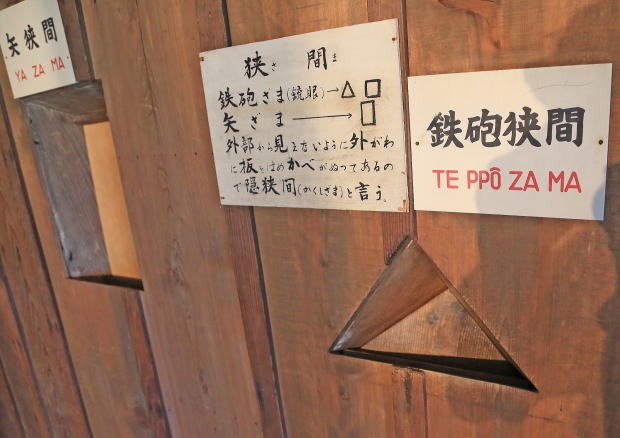 矢狭間
YA ZA MA
狭間
さま
鉄砲さま(銃眼)→△□
矢ざま→□
外部から見えないように外がわ
に板をはめかべがぬってあるの
で隠狭間(かくしざま)と言う。
鉄砲狭間
TE PPÔ ZA MA